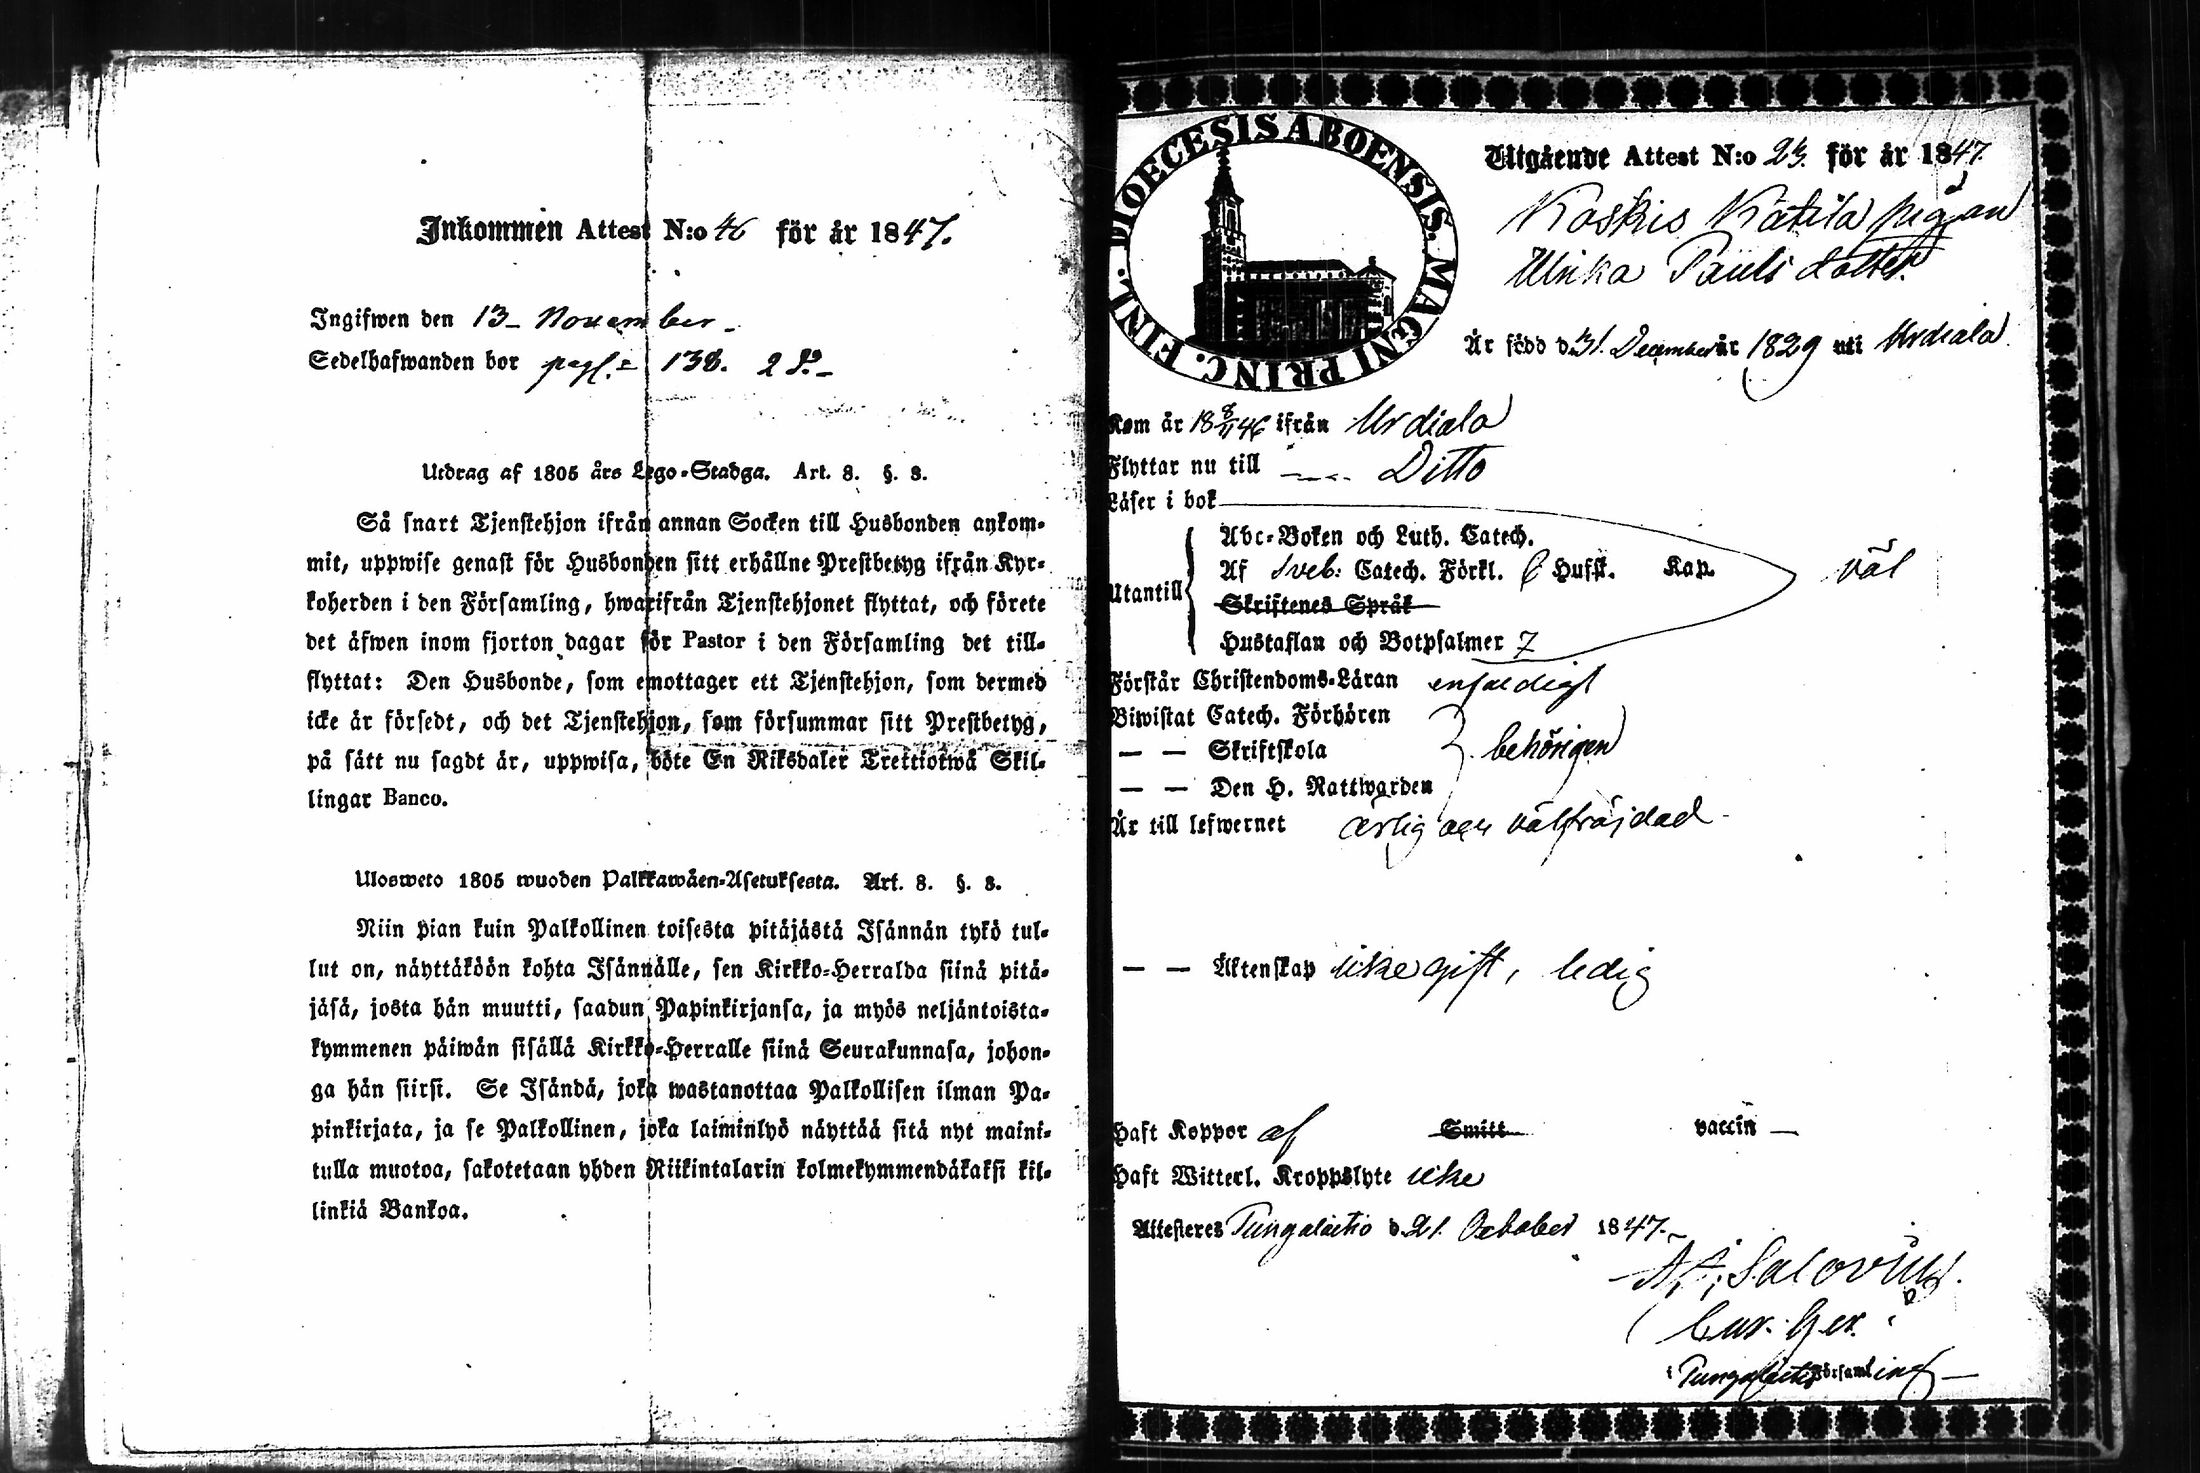 Inkommen Attest N:o 46 för år 1847.
Ingifwen den 13 November
Sedelhafwanden bor pagl. 138.
Utdrag af 1805 års Lego-Stadga. Art. 8. §. 8.
Så snart Tjenstehjon ifrån annan Socken till Husbonden ankom-
mit, uppwise genast för Husbonden sitt erhållne Prestbetyg ifrån Kyr-
koherden i den Församling, hwarifrån Tjenstehjonet flyttat, och förete
det äfwen inom fjorton dagar för Pastor i den Församling det till-
flyttat: Den Husbonde, som emottager ett Tjenstehjon, som dermed
icke är försedt, och det Tjenstehjon, som försummar sitt Prestbetyg,
på sätt nu sagdt är, uppwisa, böte En Riksdaler Trettiotwå Skil-
lingar Banco.
Ulosweto 1805 wuoden Palkkawäen-Asetuksesta. Art. 8. §. 8.
Niin pian kuin Palkollinen toisesta pitäjästä Isännän tykö tul-
lut on, näyttäköön kohta Isännälle, sen Kirkko-Herralda siinä pitä-
jäsä, josta hän muutti, saadun Papinkirjansa, ja myös neljäntoista-
kymmenen päiwän sisällä Kirkko-Herralle siinä Seurakunnasa, johon-
ga hän siirsi. Se Isändä, joka wastanottaa Palkollisen ilman Pa-
pinkirjata, ja se Palkollinen, joka laiminlyö näyttää sitä nyt maini-
tulla muotoa, sakotetaan yhden Riikintalarin kolmekymmendäkaksi kil-
linkiä Bankoa.
DIOECESIS ABOENSIS. MAGNI PRINC. FINL.
Utgående Attest N:o 23. för år 1847.
Koskis Katila pigan
Ulrika Pauls dotter.
Är född d. 31. December år 1829 uti Urdiala
Kom år 18 8/11 46 ifrån Urdiala
Flyttar nu till Ditto
Läser i bok
Utantill
Abc-Boken och Luth. Catech.
Af Sveb: Catech. Förkl. Husst. Kap. väl
Skriftenes Språk
Hustaflan och Botpsalmer 7
Förstår Christendoms-Läran enfaldigt
Biwistat Catech. Förhören
— — Skriftskola behörigen
— — Den H. Nattwarden
Är till lefwernet ärlig och välfräjdad
— — Äktenskap icke gift, ledig
Haft Koppor af Smitt vaccin —
Haft Witterl. Kroppslyte icke
Attesteres Pungalaitio d. 21. October 1847.
Salovius.
i Pungalaitio Församling